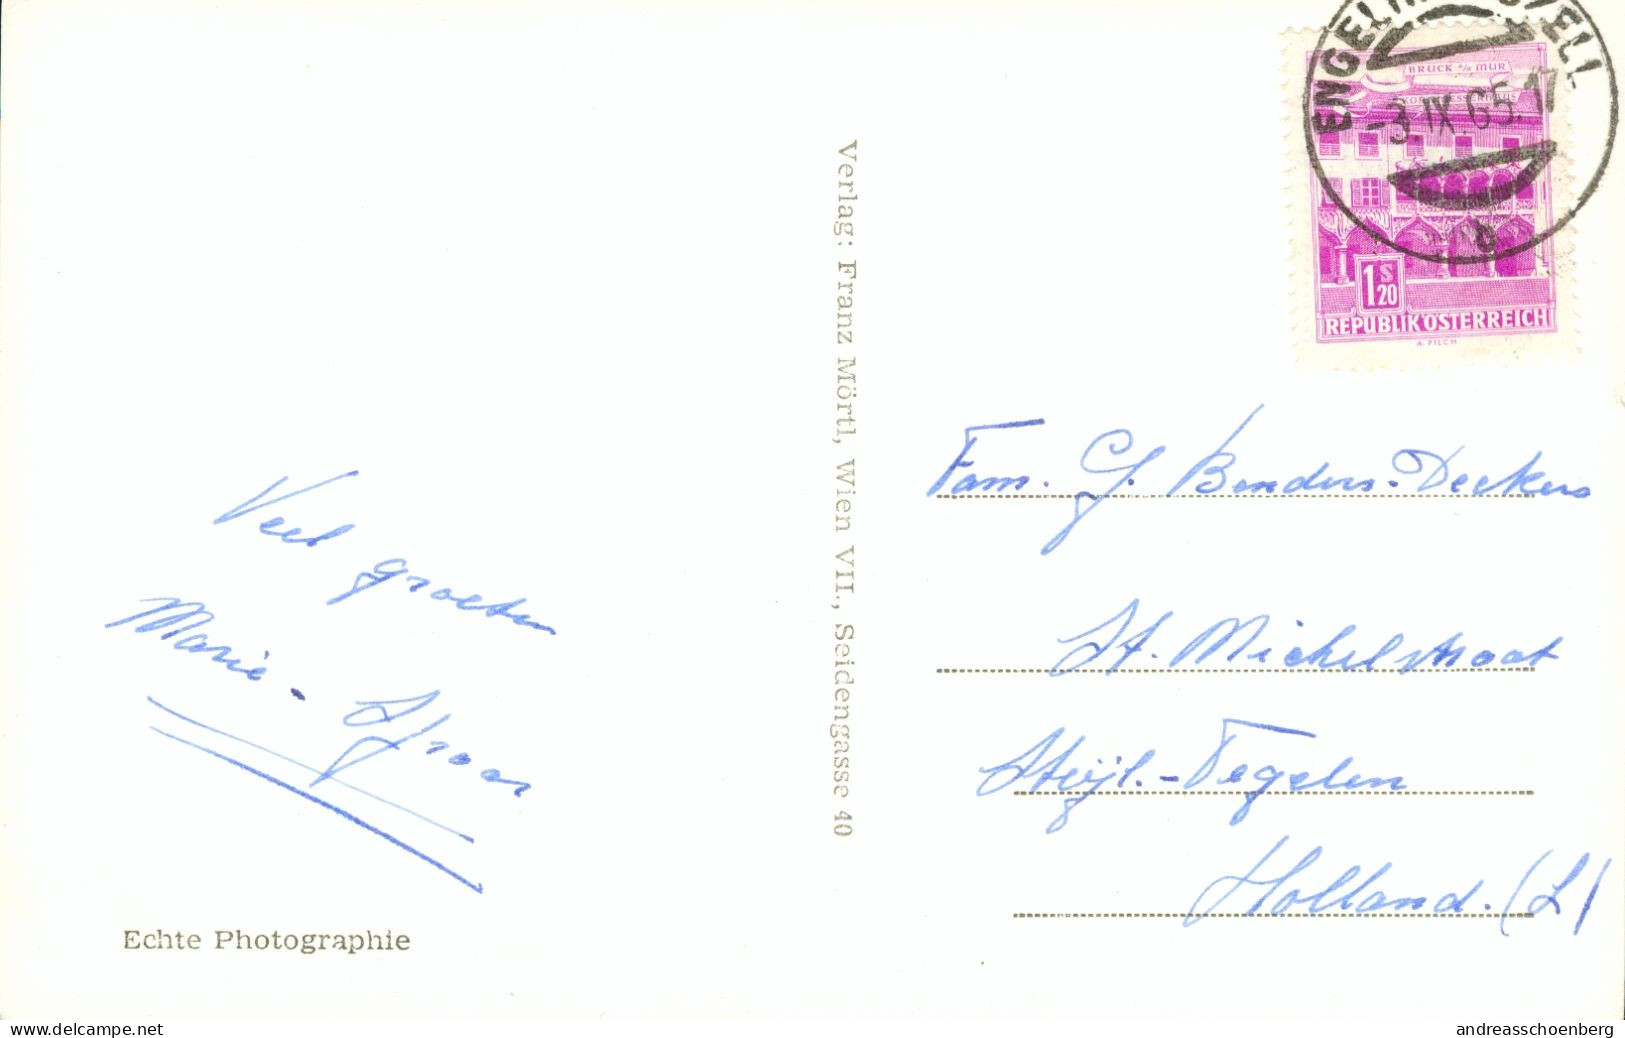 Veel groeten
Marie -
Echte Photographie
Verlag: Franz Mörtl, Wien VII., Seidengasse 40
BRUCK a/d MUR
KORNMESSERHAUS
-3.IX.65.17
b
1 S 20
REPUBLIK ÖSTERREICH
A. PILCH
Fam. G. Benders-Deckers
St. Michelstraat
Steijl.-Tegelen
Holland. (L)
www.delcampe.net
andreasschoenberg